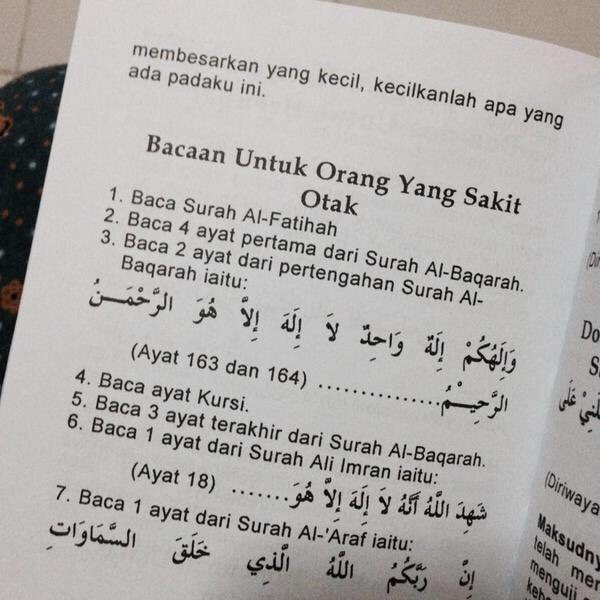 membesarkan yang kecil, kecilkanlah apa yang
ada padaku ini.
Bacaan Untuk Orang Yang Sakit
Otak
1. Baca Surah Al-Fatihah
2. Baca 4 ayat pertama dari Surah Al-Baqarah.
3. Baca 2 ayat dari pertengahan Surah Al-
Baqarah iaitu:
وَإِلَهُكُمْ إِلَهٌ وَاحِدٌ لاَ إِلَهَ إِلاَّ هُوَ الرَّحْمَـــنُ
الرَّحِيــْمُ................ (Ayat 163 dan 164)
4. Baca ayat Kursi.
5. Baca 3 ayat terakhir dari Surah Al-Baqarah.
6. Baca 1 ayat dari Surah Ali Imran iaitu:
شَهِدَ اللَّهُ أَنَّهُ لاَ إِلَهَ إِلاَّ هُوَ....... (Ayat 18)
7. Baca 1 ayat dari Surah Al-'Araf iaitu:
إِنَّ رَبَّكُمُ اللَّهُ الَّذِي خَلَقَ السَّمَاوَاتِ
(Dir
Do
S
(Diriwaya
Maksudny
telah mer
menguji